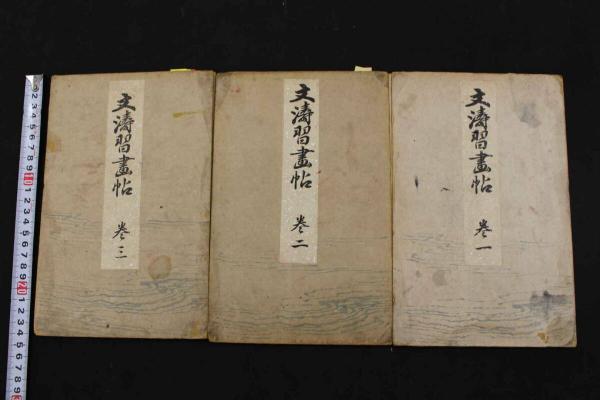 文濤習畫帖 卷一
文濤習畫帖 卷二
文濤習畫帖 卷三